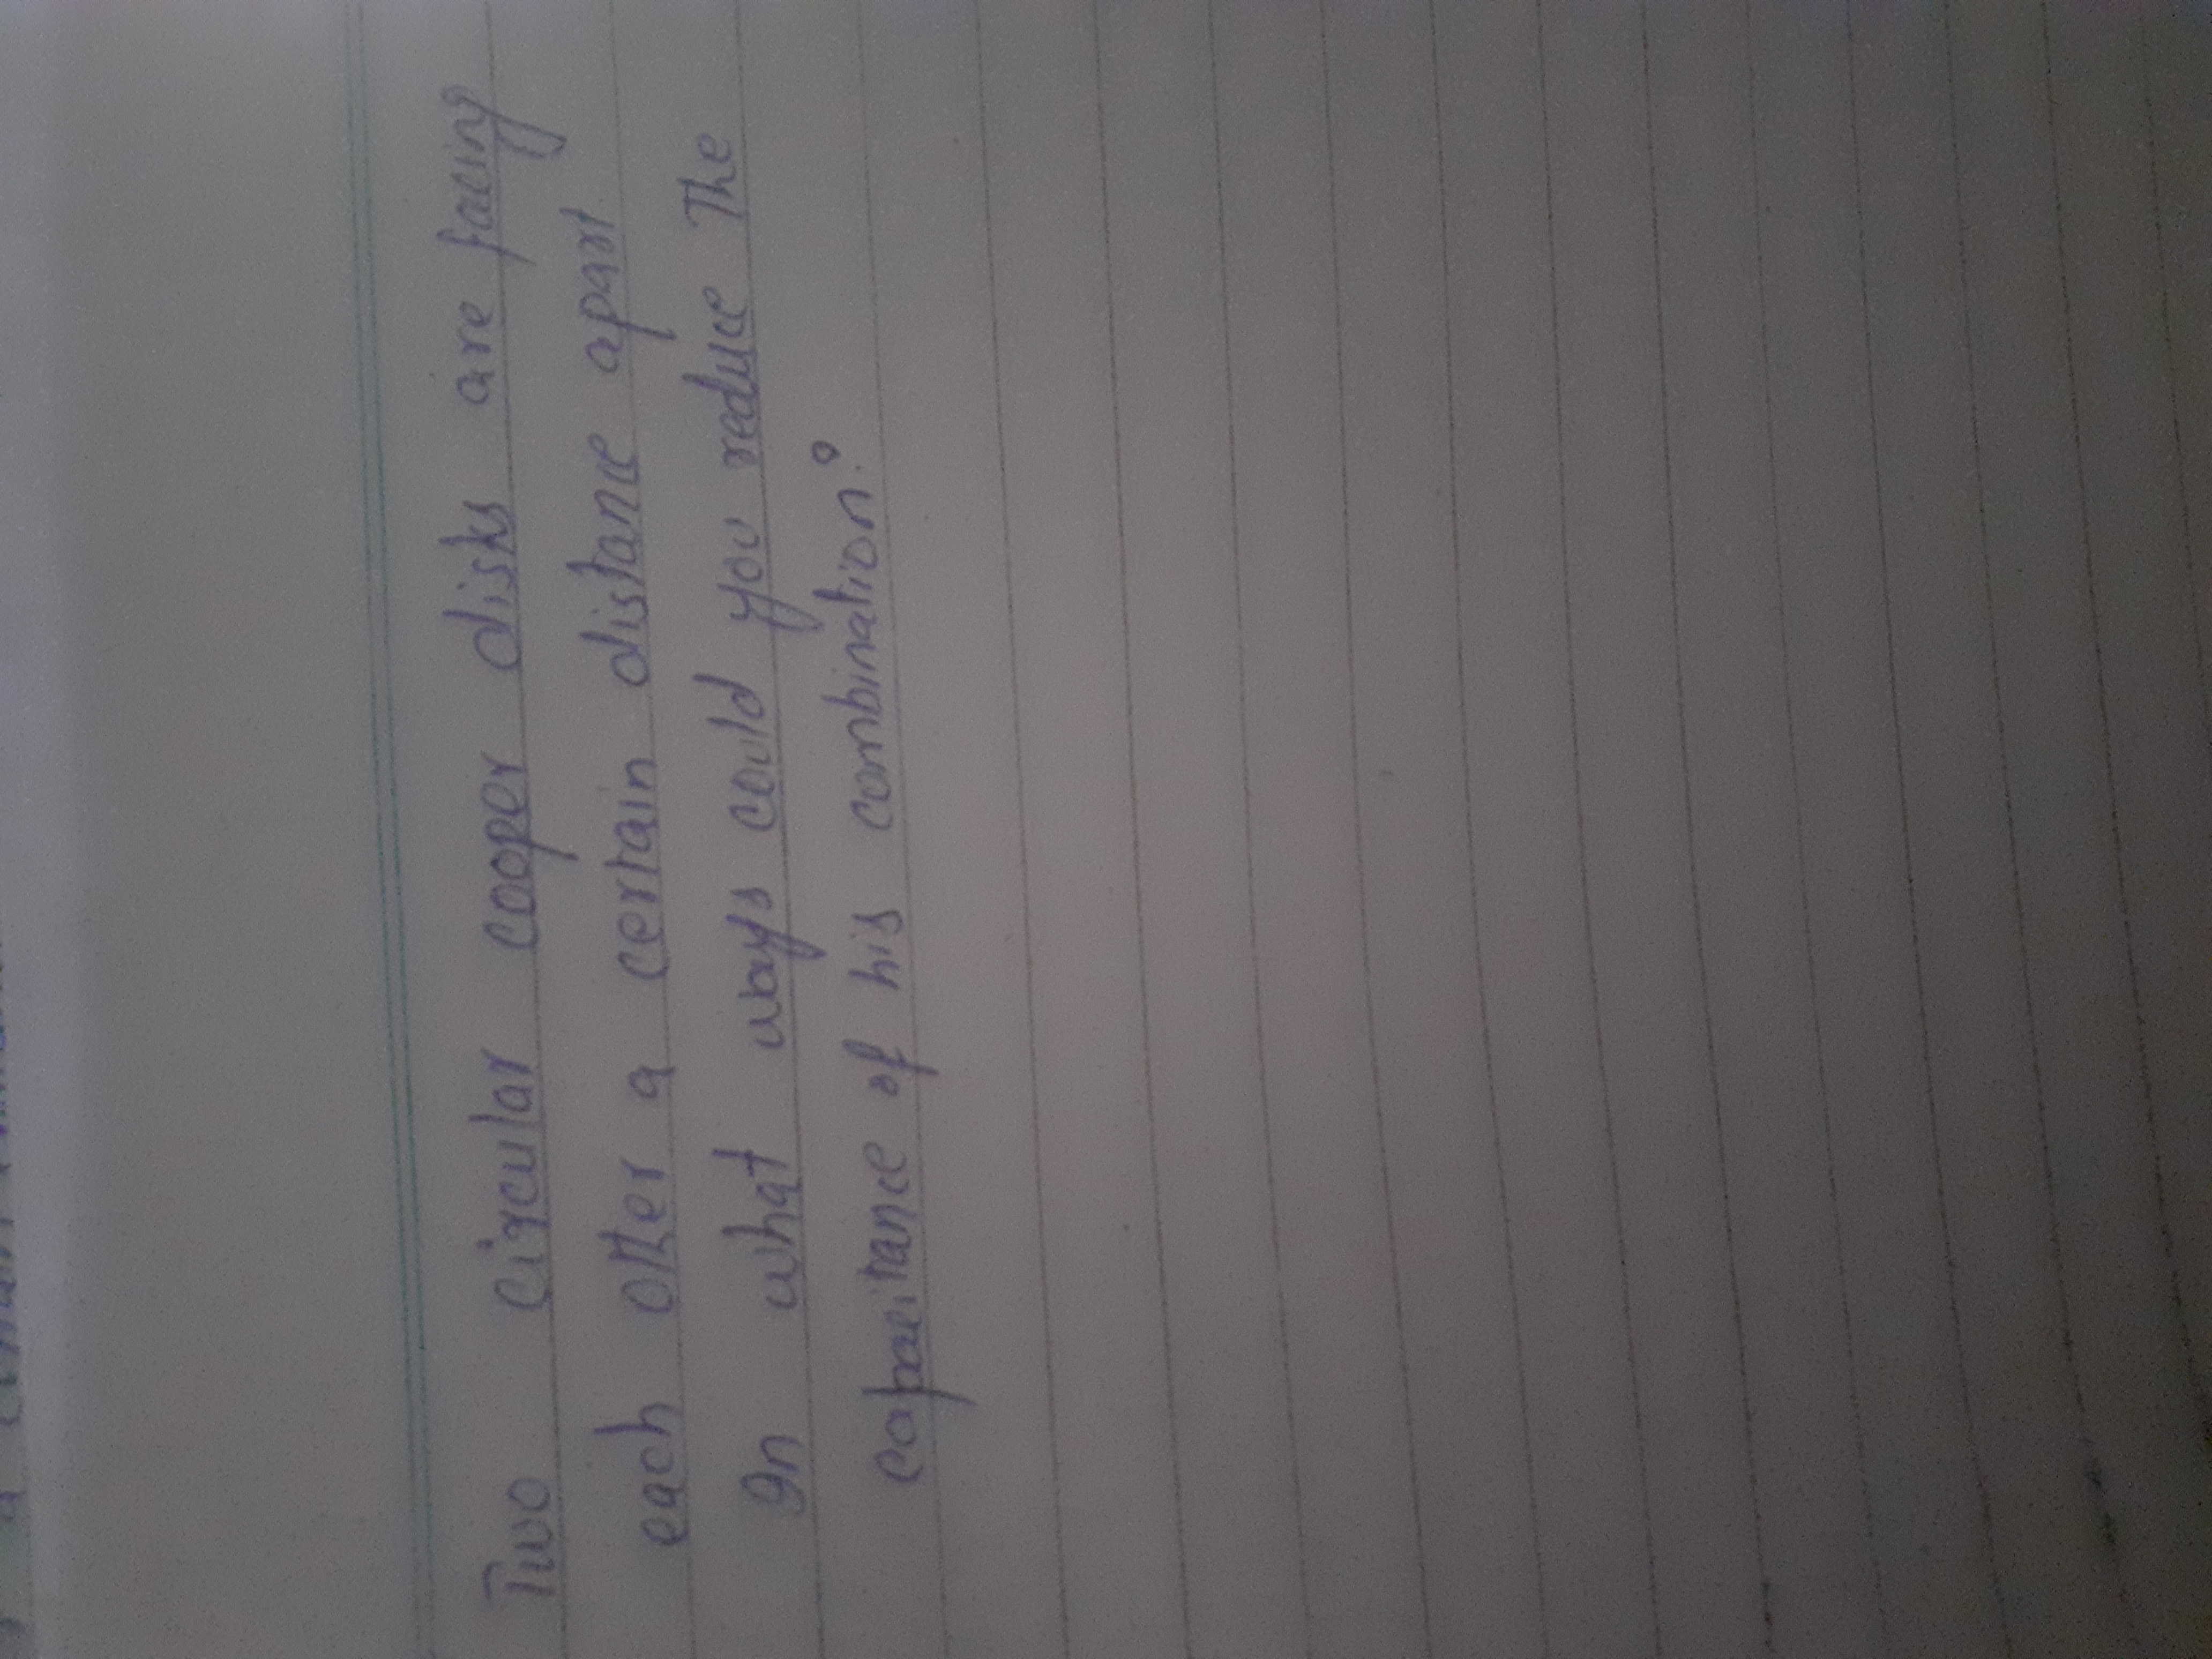 Two circular cooper disks are facing
each other a certain distance apart
In what ways could you reduce The
capacitance of his combination?